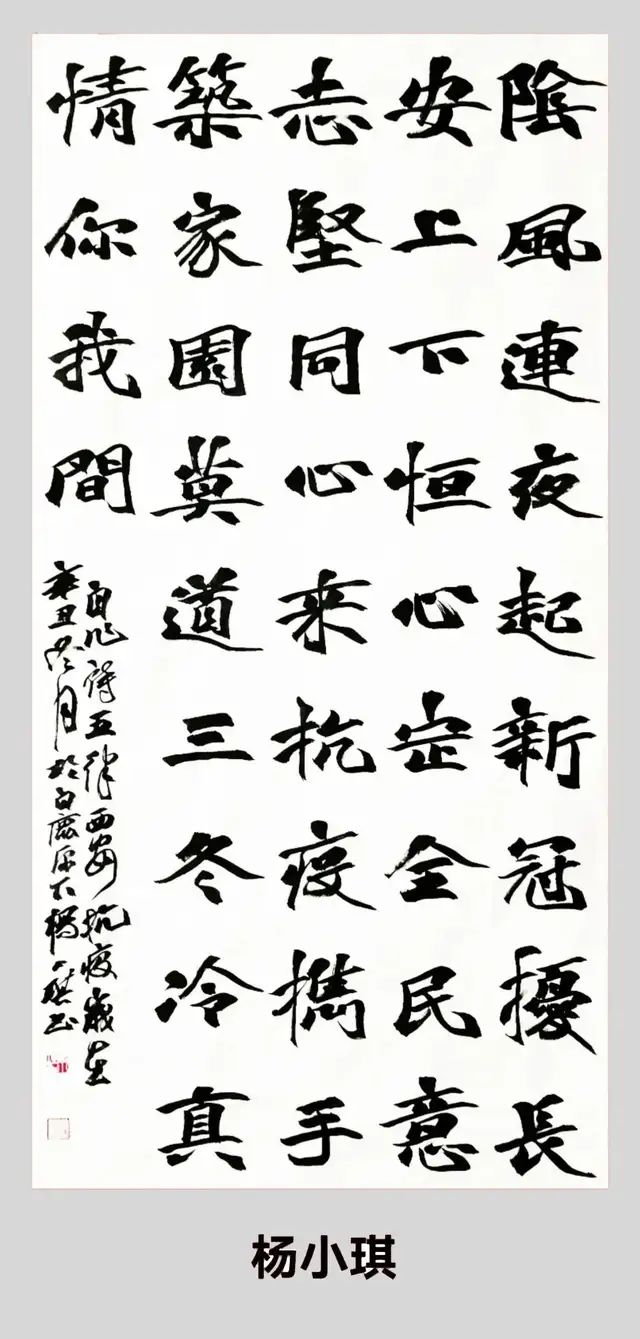 陰風連夜起新冠擾長
安上下恒心定全民意
志堅同心来抗疫携手
築家園莫道三冬冷真
情你我間
自作詩五律西安抗疫歲在
辛丑冬月於白鹿原下楊小琪书
杨小琪